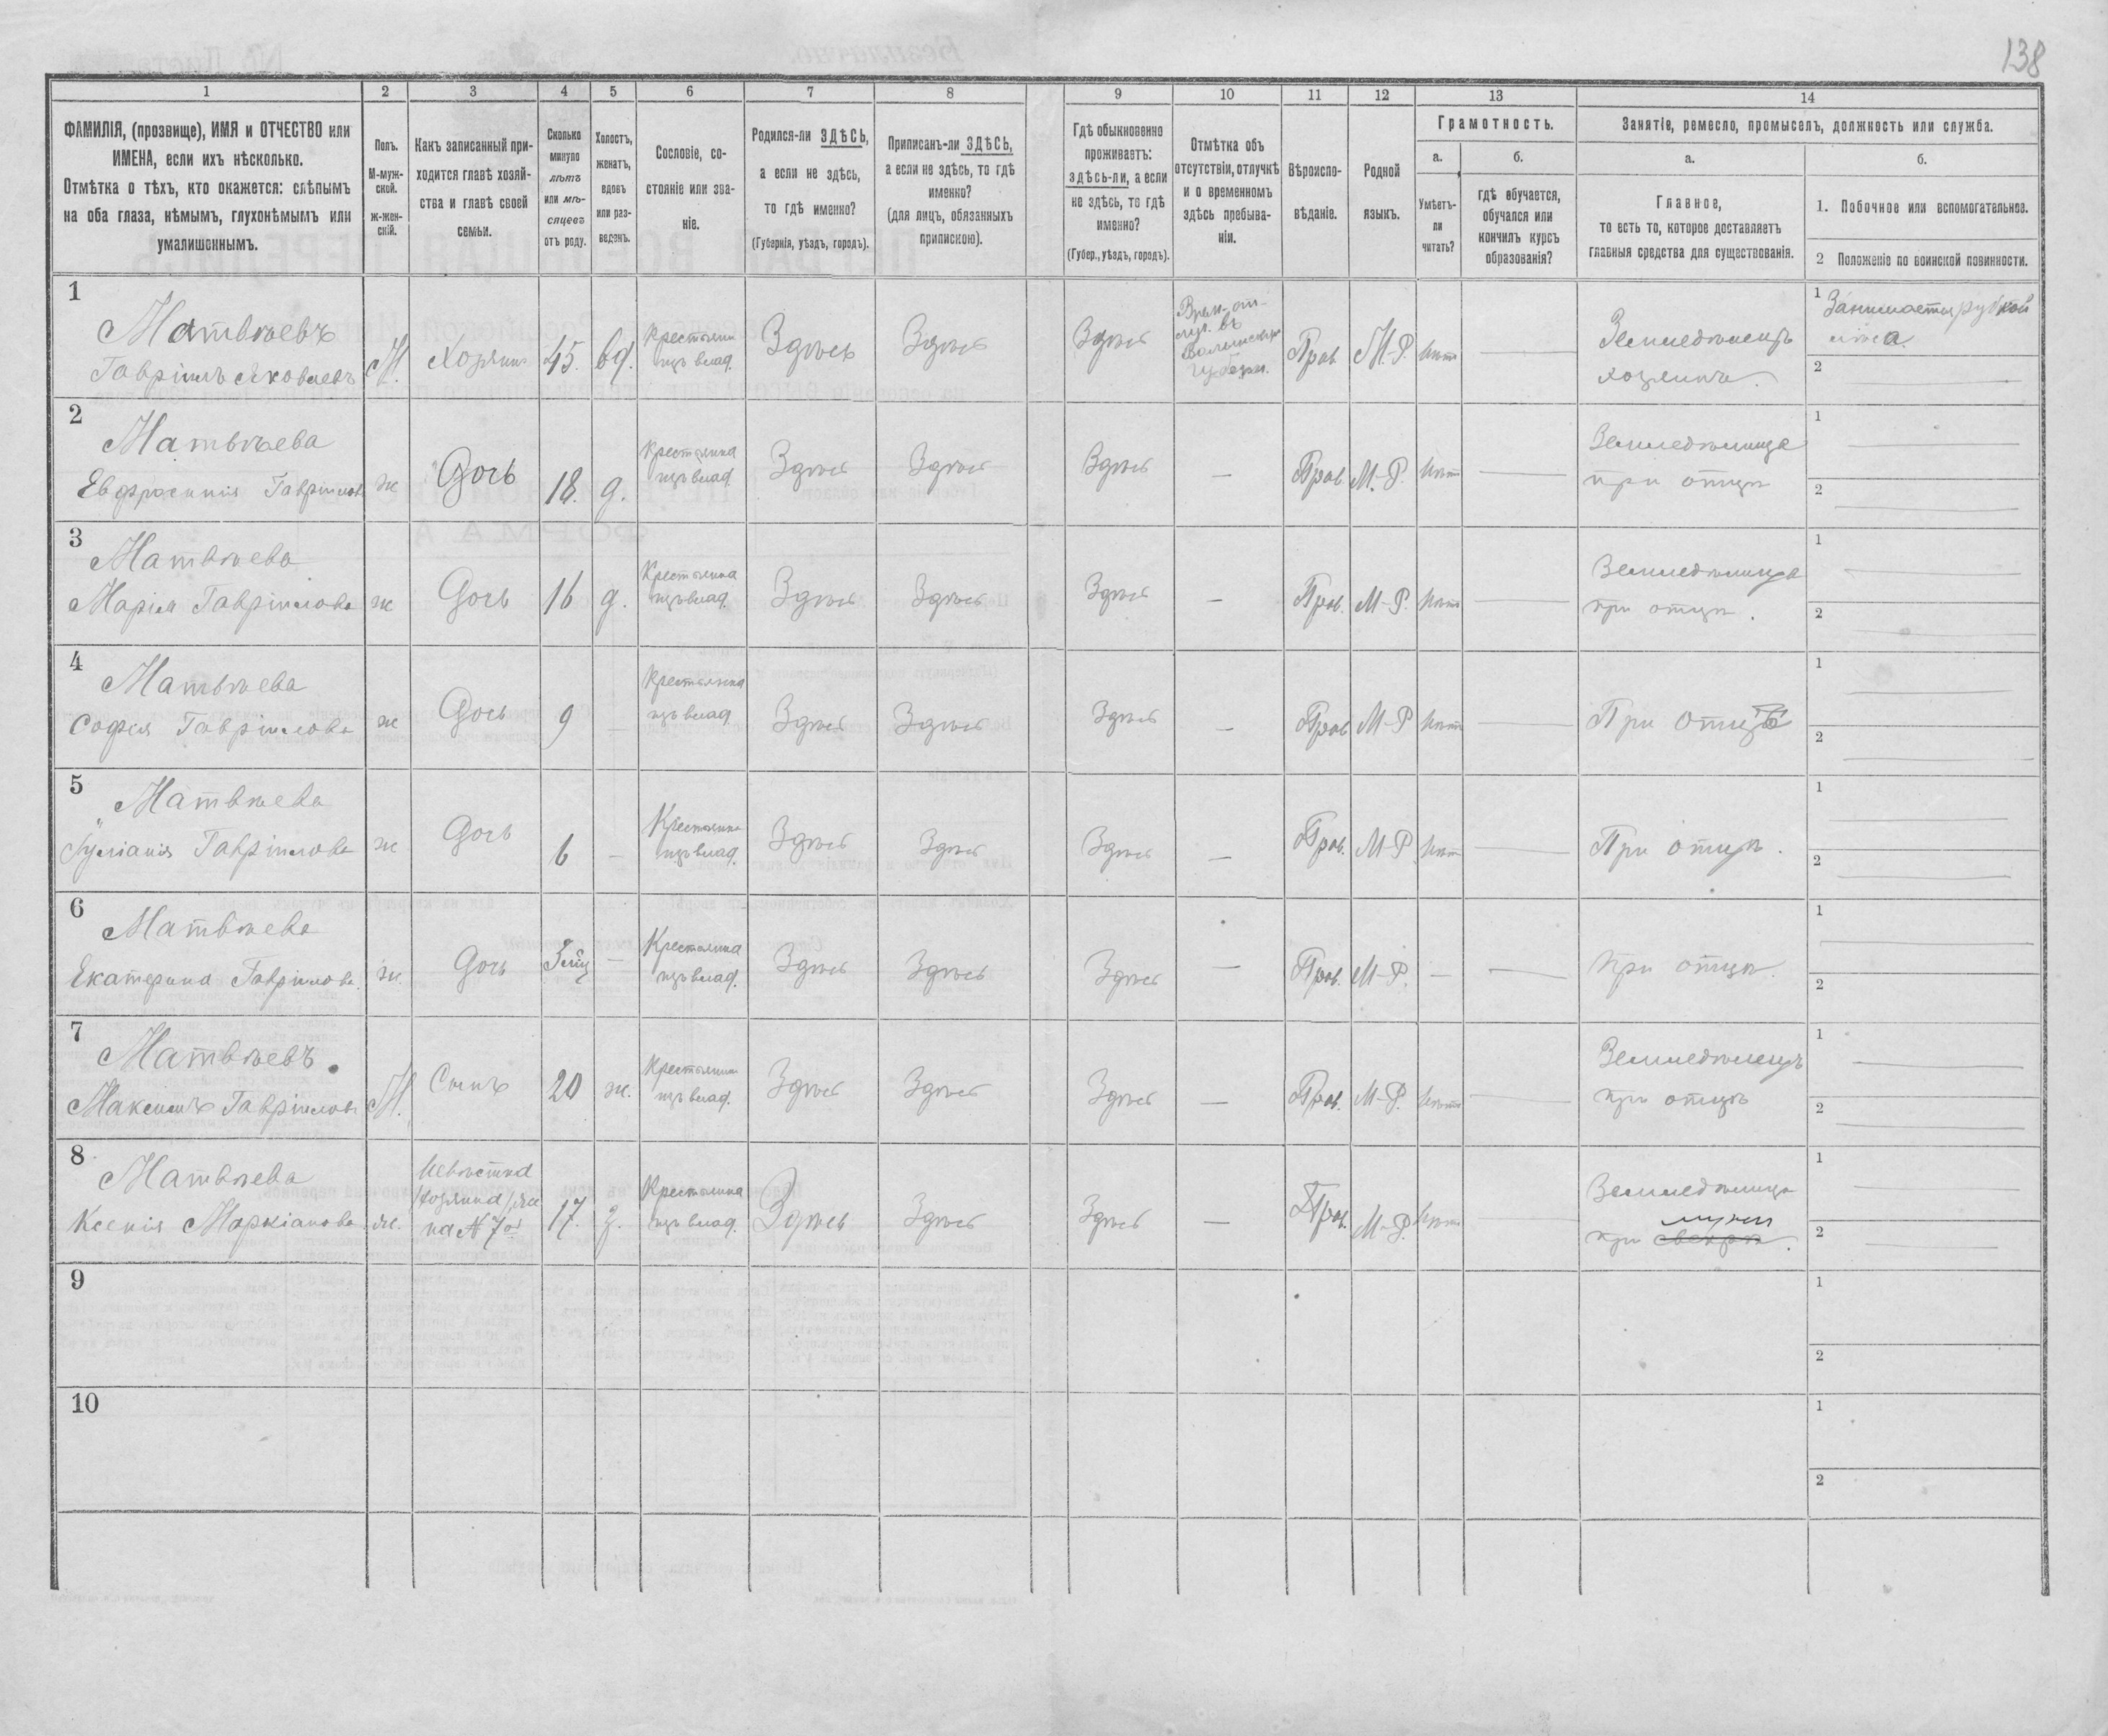 138
1 2 3 4 5 6 7 8 9 10 11 12 13 14
ФАМИЛІЯ, (прозвище), ИМЯ и ОТЧЕСТВО или
ИМЕНА, если ихъ нѣсколько.
Отмѣтка о тѣхъ, кто окажется: слѣпымъ
на оба глаза, нѣмымъ, глухонѣмымъ или
умалишеннымъ.
Полъ.
М-муж-
ской.
ж-жен-
скій.
Какъ записанный при-
ходится главѣ хозяй-
ства и главѣ своей
семьи.
Сколько
минуло
лѣтъ
или мѣ-
сяцевъ
отъ роду.
Холостъ,
женатъ,
вдовъ
или раз-
веденъ.
Сословіе, со-
стояніе или зва-
ніе.
Родился-ли ЗДѢСЬ,
а если не здѣсь,
то гдѣ именно?
(Губернія, уѣздъ, городъ).
Приписанъ-ли ЗДѢСЬ,
а если не здѣсь, то гдѣ
именно?
(для лицъ, обязанныхъ
припискою).
Гдѣ обыкновенно
проживаетъ:
здѣсь-ли, а если
не здѣсь, то гдѣ
именно?
(Губер., уѣздъ, городъ).
Отмѣтка объ
отсутствіи, отлучкѣ
и о временномъ
здѣсь пребыва-
ніи.
Вѣроиспо-
вѣданіе.
Родной
языкъ.
Грамотность.
а.
Умѣетъ-
ли
читать?
б.
гдѣ обучается,
обучался или
кончилъ курсъ
образованія?
Занятіе, ремесло, промыселъ, должность или служба.
а.
Главное,
то есть то, которое доставляетъ
главныя средства для существованія.
б.
1. Побочное или вспомогательное.
2 Положеніе по воинской повинности.
1
Матвѣевъ
Гавріилъ Яковлевъ
М. Хозяинъ 45. вд.
Крестьянинъ
изъ влад.
Здѣсь Здѣсь Здѣсь
Врем. от-
луч. въ
Волынскую
Губерн.
Прав. М.-Р. Нѣтъ
Земледѣлецъ
хозяинъ.
1 Занимается рубкой
лѣса
2
2
Матвѣева
Евфросинія Гавріилова
ж Дочь 18. д.
Крестьянка
изъ влад.
Здѣсь Здѣсь Здѣсь — Прав. М.-Р. Нѣтъ
Земледѣлица
при отцѣ
1
2
3
Матвѣева
Марія Гавріилова
ж Дочь 16 д.
Крестьянка
изъ влад.
Здѣсь Здѣсь Здѣсь — Прав. М-Р. Нѣтъ
Земледѣлица
при отцѣ.
1
2
4
Матвѣева
Софія Гавріилова
ж Дочь 9 —
Крестьянка
изъ влад.
Здѣсь Здѣсь Здѣсь — Прав М-Р Нѣтъ
При отцѣ
1
2
5
Матвѣева
Іуліанія Гавріилова
ж Дочь 6 —
Крестьянка
изъ влад.
Здѣсь Здѣсь Здѣсь — Прав. М-Р Нѣтъ
При отцѣ.
1
2
6
Матвѣева
Екатерина Гавріилова.
ж. Дочь —
Крестьянка
изъ влад.
Здѣсь Здѣсь Здѣсь — Прав. М-Р. — —
При отцѣ.
1
2
7
Матвѣевъ
Максимъ Гавріиловъ
М. Сынъ 20 ж.
Крестьянинъ
изъ влад.
Здѣсь Здѣсь Здѣсь — Прав. М-Р. Нѣтъ
Земледѣлецъ
при отцѣ
1
2
8
Матвѣева
Ксенія Маркіанова
ж.
Невѣстка
хозяина, жена
№ 7го
17. з.
Крестьянка
изъ влад.
Здѣсь Здѣсь Здѣсь — Прав. М-Р. Нѣтъ
Земледѣлица
мужѣ
при свекрѣ.
1
2
9
1
2
10
1
2